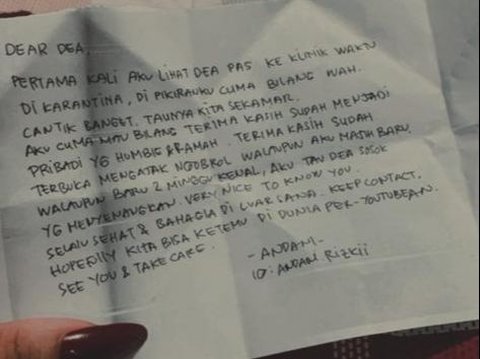 DEAR DEA,
PERTAMA KALI AKU LIHAT DEA PAS KE KLINIK WAKTU
DI KARANTINA, DI PIKIRANKU CUMA BILANG WAH.
CANTIK BANGET. TAUNYA KITA SEKAMAR.
AKU CUMA MAU BILANG TERIMA KASIH SUDAH MENJADI
PRIBADI YG HUMBLE & RAMAH. TERIMA KASIH SUDAH
TERBUKA MENGAJAK NGOBROL WALAUPUN AKU MASIH BARU.
WALAUPUN BARU 2 MINGGU KENAL, AKU TAU DEA SOSOK
YG MENYENANGKAN. VERY NICE TO KNOW YOU.
SELALU SEHAT & BAHAGIA DI LUAR SANA. KEEP CONTACT.
HOPEFULLY KITA BISA KETEMU DI DUNIA PER-YOUTUBEAN.
SEE YOU & TAKE CARE.
- ANDANI -
IG: ANDANI RIZKII